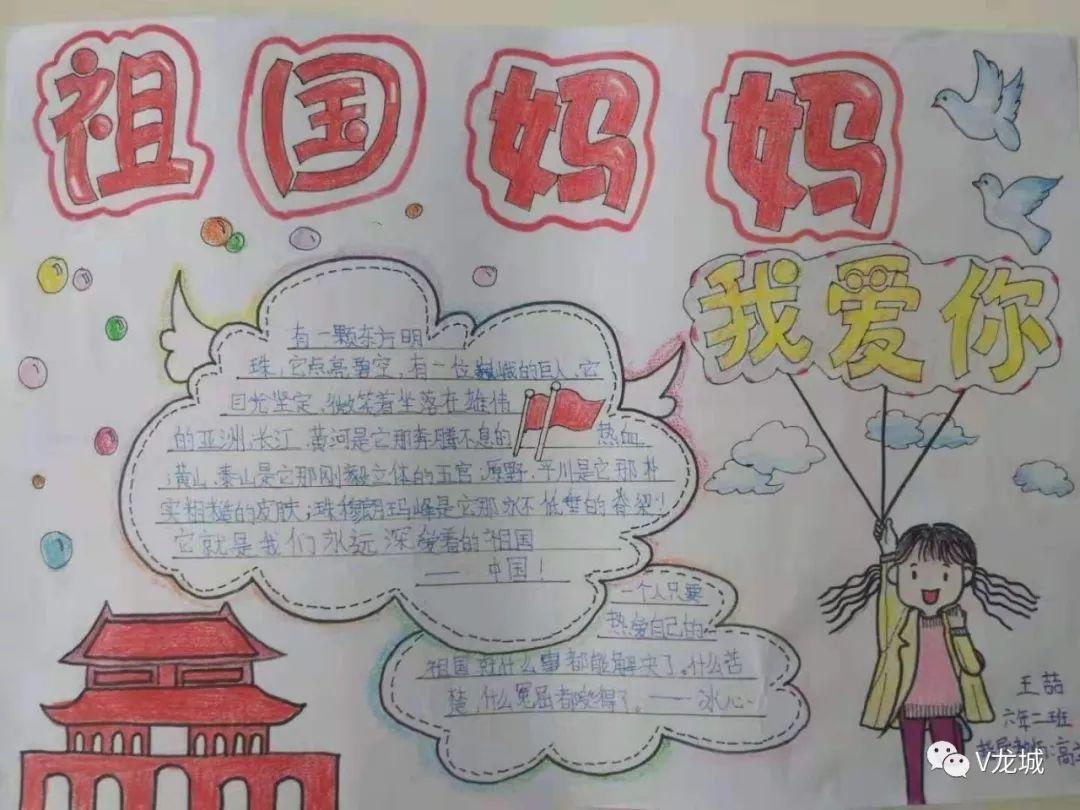 祖国妈妈
我爱你
有一颗东方明
珠，它点亮碧空，有一位巍峨的巨人，它
目光坚定，微笑着坐落在雄伟
的亚洲；长江、黄河是它那奔腾不息的热血，
黄山、泰山是它那刚毅立体的五官；原野、平川是它那朴
实粗糙的皮肤；珠穆朗玛峰是它那永不低垂的脊梁！
它就是我们永远深爱着的祖国
——中国！
一个人只要
热爱自己的
祖国，就什么事都能解决了。什么苦
楚，什么冤屈都受得了。——冰心
王喆
六年二班
V龙城